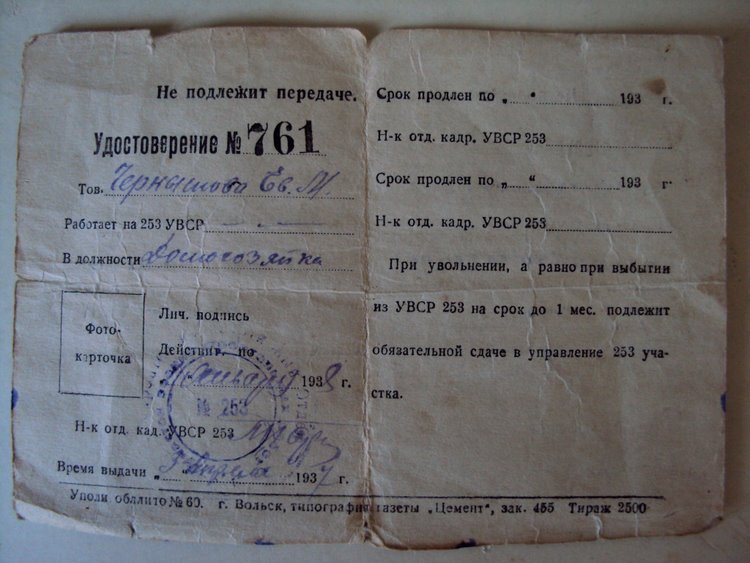 Не подлежит передаче.
Удостоверение № 761
Тов. Чернышова Ев. М.
Работает на 253 УВСР
В должности Домохозяйка
Фото-
карточка
Лич. подпись
Действит. по
Января 1938 г.
№ 253
Н-к отд. кад. УВСР 253
Время выдачи „ Апреля 1937 г.
Срок продлен по „ “ 193 г.
Н-к отд. кадр. УВСР 253
Срок продлен по „ “ 193 г.
Н-к отд. кадр. УВСР 253
При увольнении, а равно при выбытии
из УВСР 253 на срок до 1 мес. подлежит
обязательной сдаче в управление 253 уча-
стка.
Уполи обллито № 60. г. Вольск, типография газеты „Цемент“, зак. 455 Тираж 2500